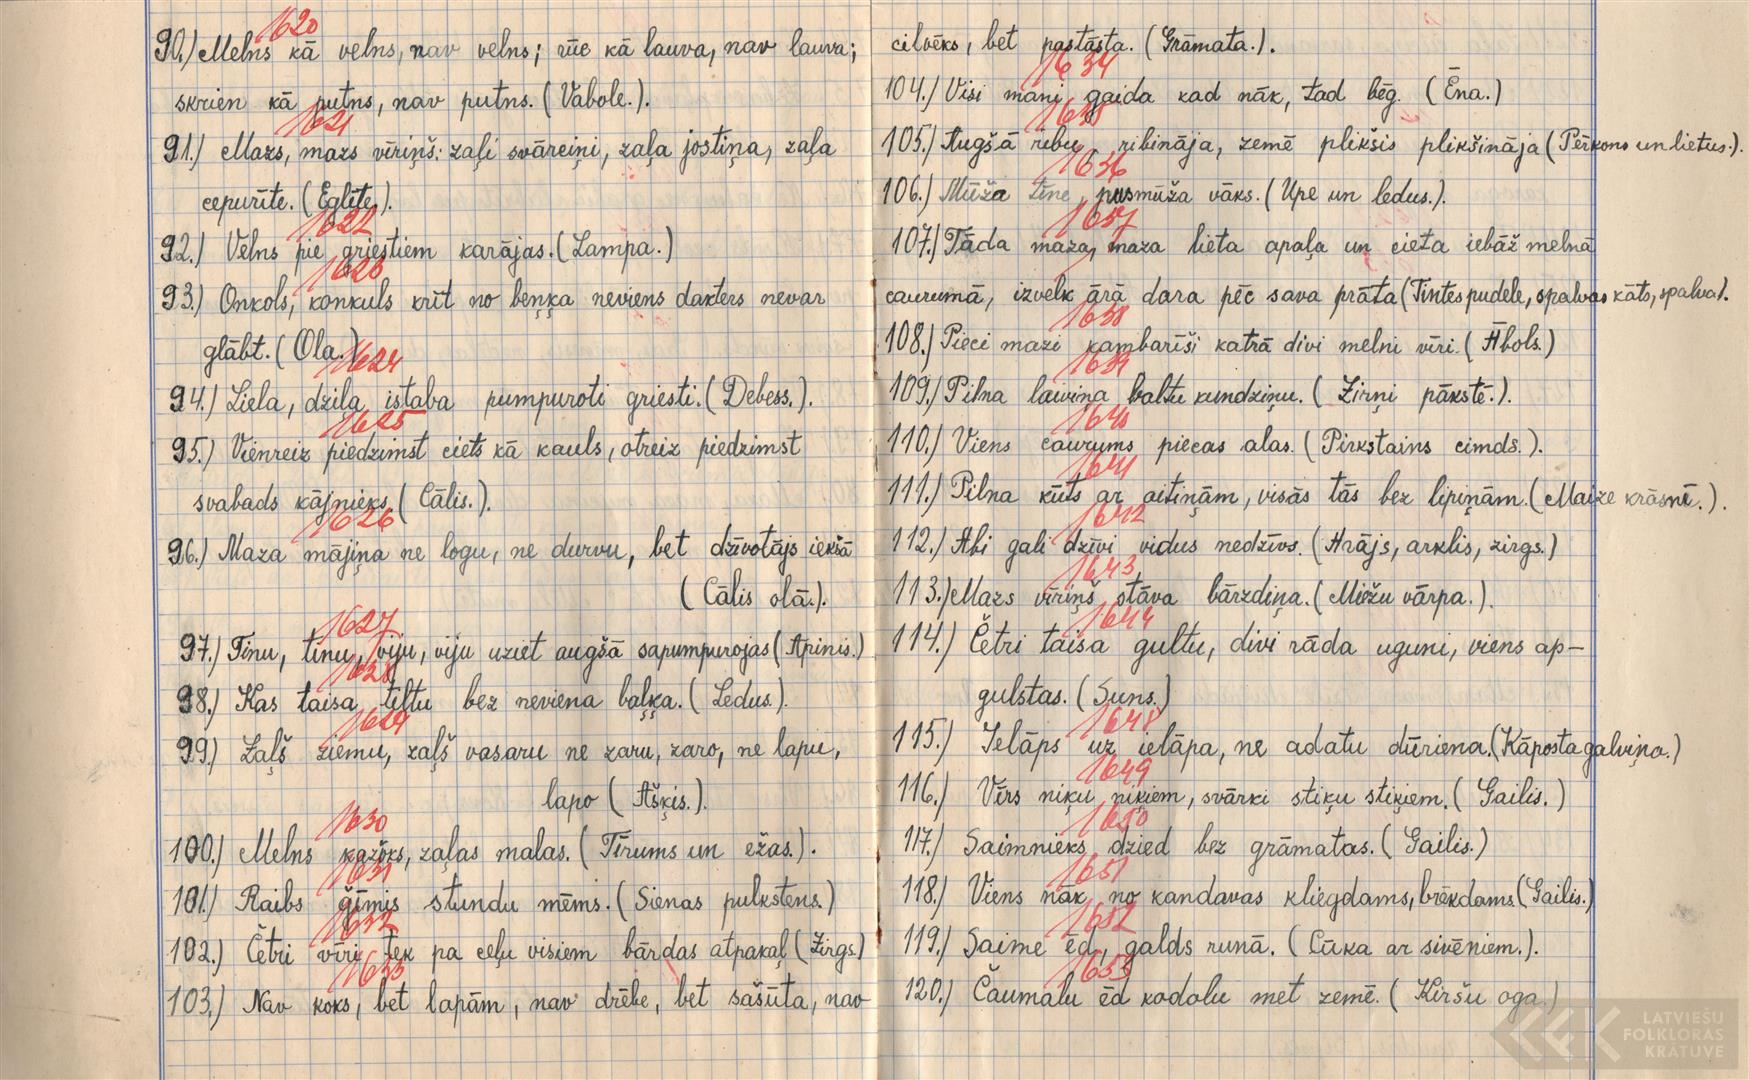 1620
90.) Melns kā velns, nav velns; rūc kā lauva, nav lauva;
skrien kā putns, nav putns. (Vabole.).
1621
91.) Mazs, mazs vīriņš: zaļi svārciņi, zaļa jostiņa, zaļa
cepurīte. (Eglīte.).
1622
92.) Velns pie griestiem karājas. (Lampa.)
1623
93.) Onkols, konkuls krīt no beņķa neviens dakters nevar
glābt. (Ola.)
1624
94.) Liela, dziļa istaba pumpuroti griesti. (Debess.).
1625
95.) Vienreiz piedzimst ciets kā kauls, otreiz piedzimst
svabads kājnieks. (Cālis.).
1626
96.) Maza mājiņa ne logu, ne durvu, bet dzīvotājs iekšā
(Cālis olā.).
1627
97.) Tinu, tinu, viju, viju uziet augšā sapumpurojas (Apinis.)
1628
98.) Kas taisa tiltu bez neviena baļķa. (Ledus.).
1629
99.) Zaļš ziemu, zaļš vasaru ne zaru, zaro, ne lapu,
lapo (Ašķis.).
1630
100.) Melns kažoks, zaļas malas. (Tīrums un ežas.).
1631
101.) Raibs ģīmis stundu mēms. (Sienas pulkstens.)
1632
102.) Četri vīri tek pa ceļu visiem bārdas atpakaļ (Zirgs.)
1633
103.) Nav koks, bet lapām, nav drēbe, bet sašūta, nav
cilvēks, bet pastāsta. (Grāmata.).
1634
104.) Visi mani gaida kad nāk, tad bēg. (Ēna.)
1635
105.) Augšā ribu, ribināja, zemē plikšis plikšināja (Pērkons un lietus.).
1636
106.) Mūža tīne, pusmūža vāks. (Upe un ledus.).
1637
107.) Tāda maza, maza lieta apaļa un cieta iebāž melnā
caurumā, izvelk ārā dara pēc sava prāta (Tintes pudele, spalvas kāts, spalva).
1638
108.) Pieci mazi kambarīši katrā divi melni vīri. (Ābols.)
1639
109.) Pilna laiviņa baltu kundziņu. (Zirņi pākstē.).
1640
110.) Viens caurums piecas alas. (Pirkstains cimds.).
1641
111.) Pilna kūts ar aitiņām, visās tās bez lipiņām. (Maize krāsnē.).
1642
112.) Abi gali dzīvi vidus nedzīvs. (Arājs, arklis, zirgs.)
1643
113.) Mazs vīriņš stāva bārzdiņa. (Miežu vārpa.).
1644
114.) Četri taisa gultu, divi rāda uguni, viens ap-
gulstas. (Suns.)
1648
115.) Ielāps uz ielāpa, ne adatu dūriena. (Kāposta galviņa.)
1649
116.) Vīrs niķu niķiem, svārki stiķu stiķiem. (Gailis.)
1650
117.) Saimnieks dzied bez grāmatas. (Gailis.)
1651
118.) Viens nāk no kandavas kliegdams, brēkdams (Gailis.)
1652
119.) Saime ēd, galds runā. (Cūka ar sivēniem.).
1653
120.) Čaumalu ēd kodolu met zemē. (Ķiršu oga.)
LATVIEŠU
FOLKLORAS
KRĀTUVE